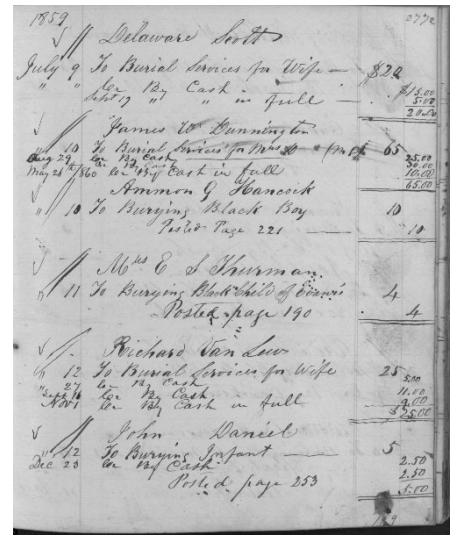 1859 277
Delaware Scott
July 9 To Burial Services for Wife — $20
" " Cr By Cash — $15.00
Sept 19 " " " in full — 5.00
20.00
James W Dunnington
" 10 To Burial Services for Mrs D 65
Aug 29 Cr By Cash 25.00
30.00
May 26 1860 Cr By Cash in full 10.00
65.00
Ammon G Hancock
" 10 To Burying Black Boy 10
Posted Page 221 — 10
Mrs E S Thurman
" 11 To Burying Black Child of 4
Posted page 190 4
Richard Van Lew
" 12 To Burial Services for Wife 25
" 27 Cr By Cash 5.00
Sept 16 Cr By Cash 11.00
Nov 1 Cr By Cash in full 9.00
$25.00
John Daniel
" 12 To Burying Infant — 5
2.50
Dec 23 Cr By Cash 2.50
Posted page 253 5.00
129